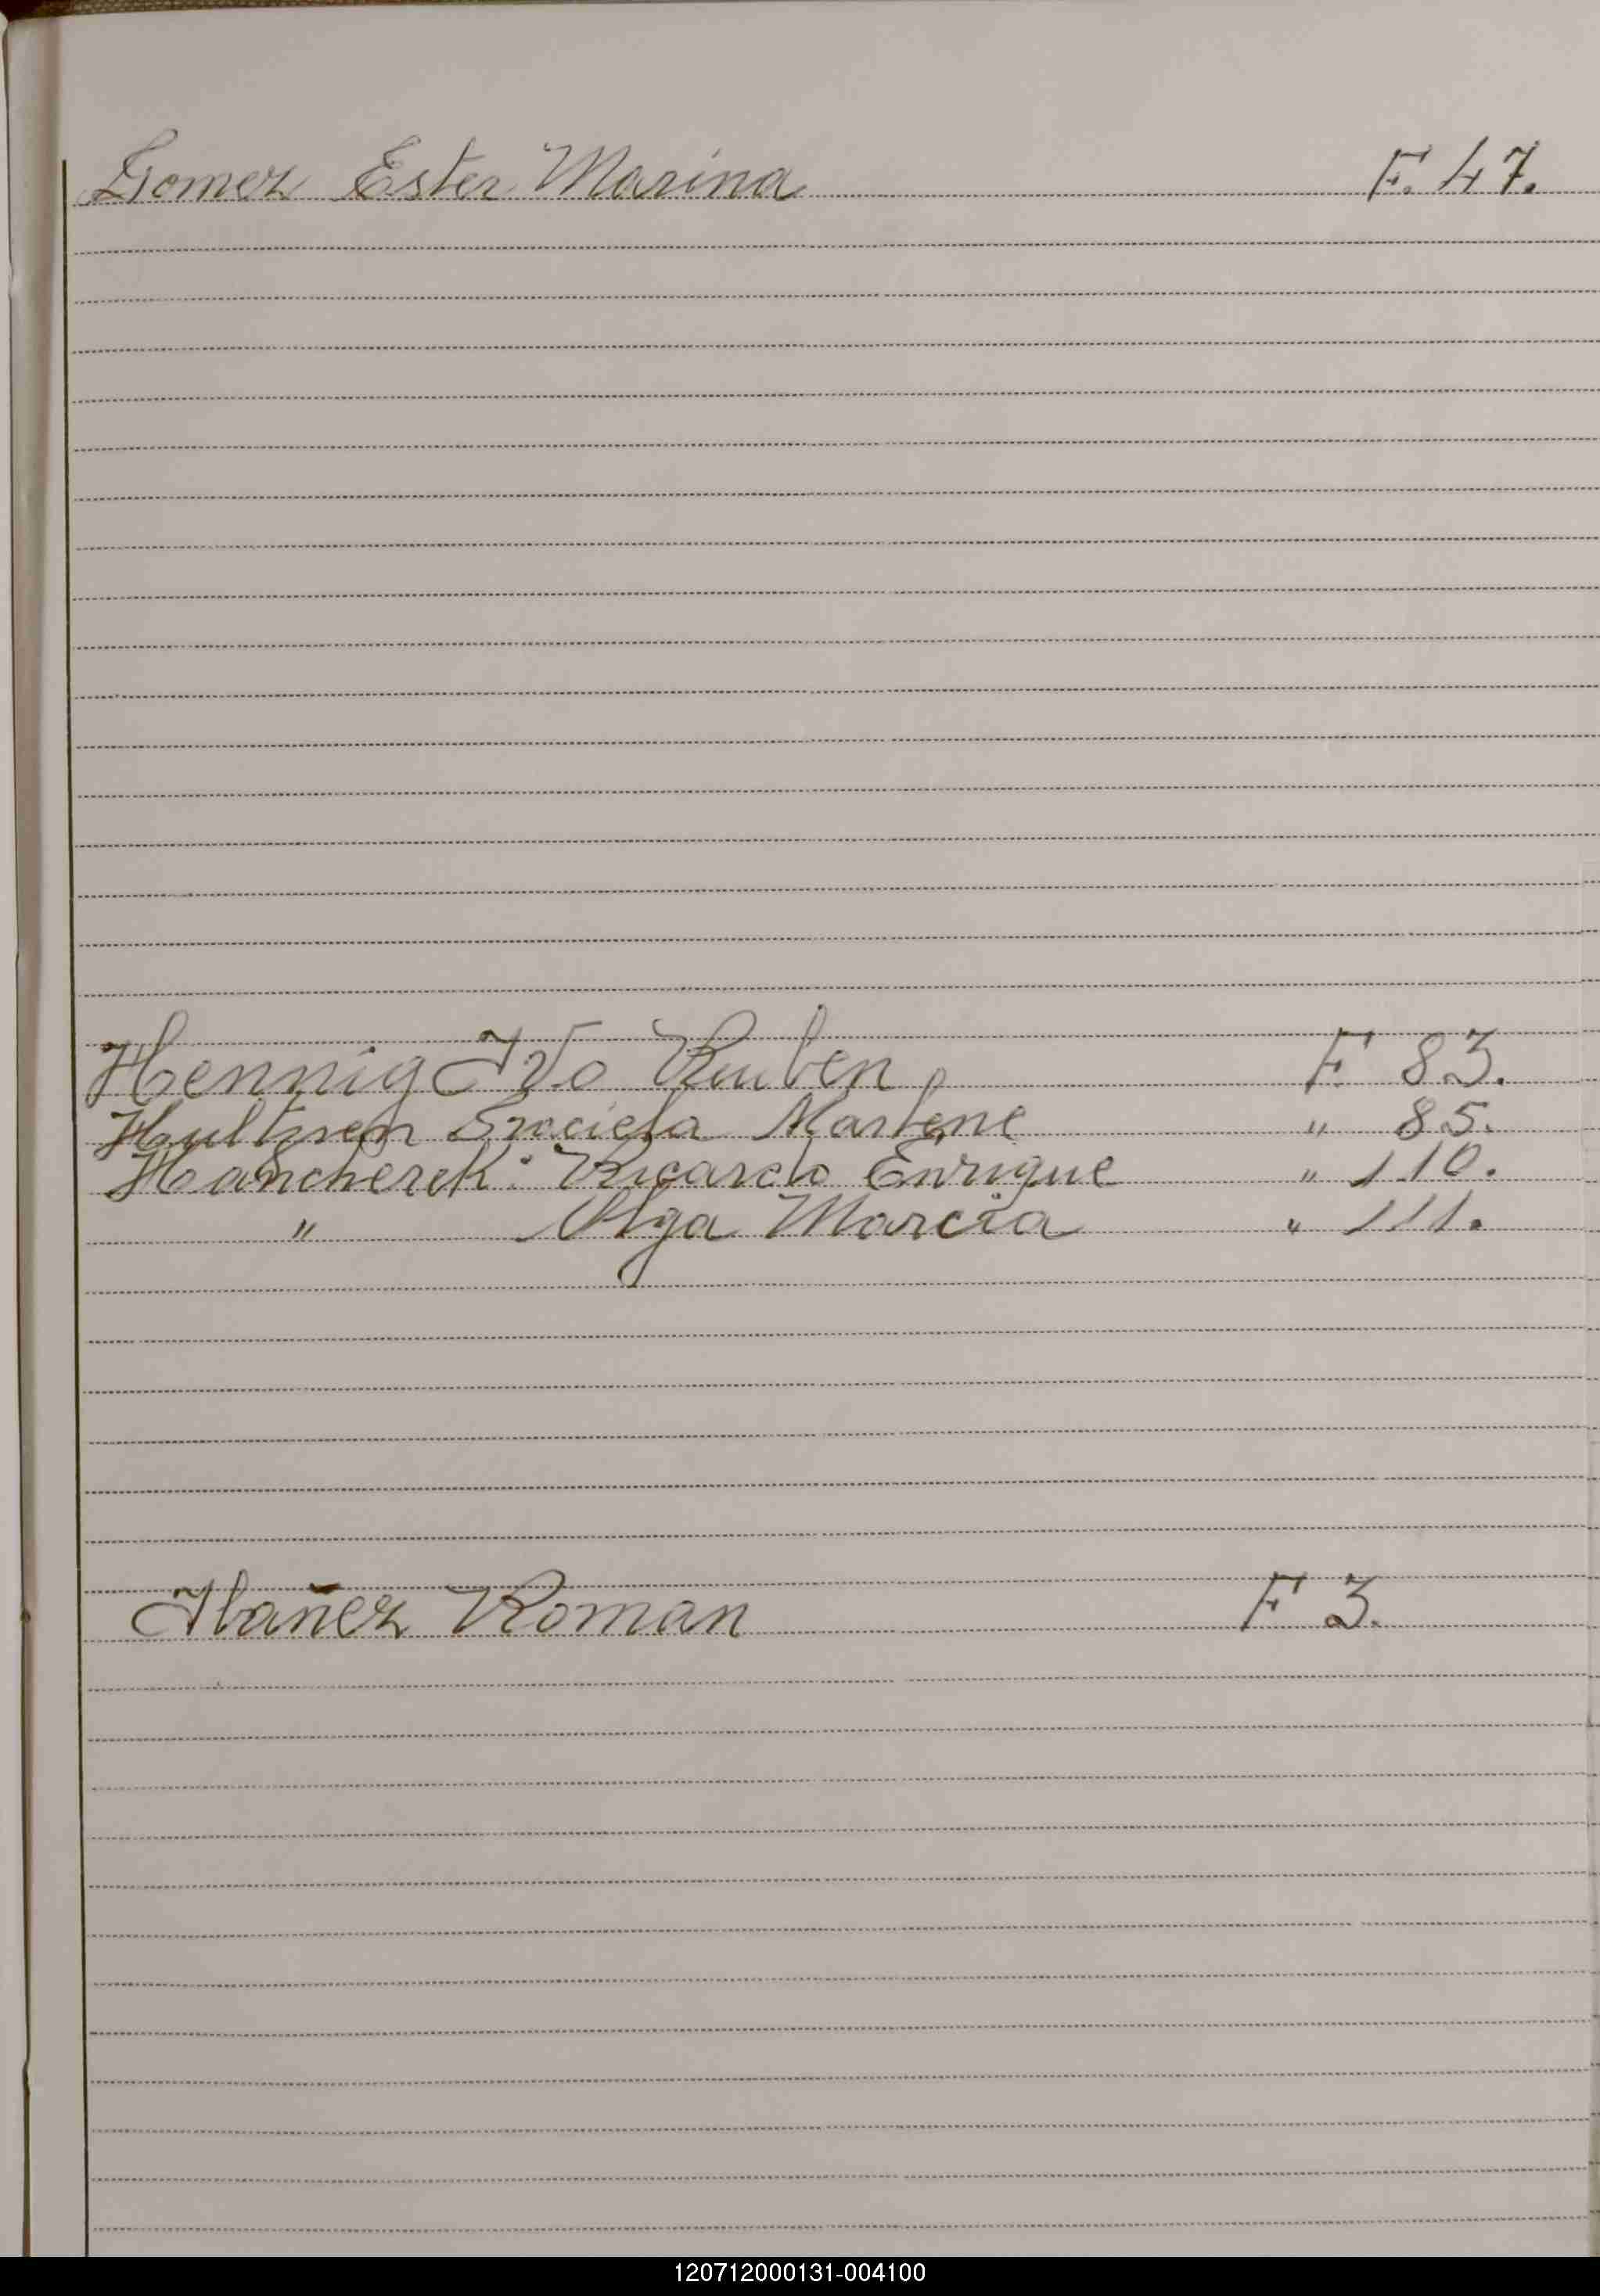 Gomez Ester Marina F. 47.
Hennig Ivo Ruben F. 83.
Graciela Marlene " 85.
Hancherek Ricardo Enrique " 110.
" Olga Marcia " 111.
Ibañez Roman F 3.
120712000131-004100